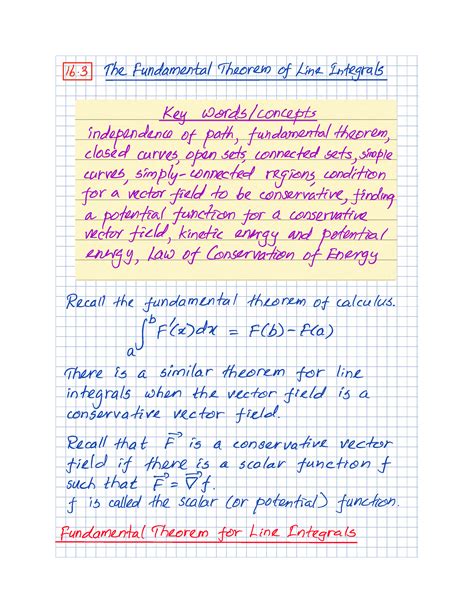 16.3 The Fundamental Theorem of Line Integrals
Key words/concepts
independence of path, fundamental theorem,
closed curves, open sets, connected sets, simple
curves, simply-connected regions, condition
for a vector field to be conservative, finding
a potential function for a conservative
vector field, kinetic energy and potential
energy, Law of Conservation of Energy
Recall the fundamental theorem of calculus.
∫_a^b F'(x)dx = F(b)-F(a)
There is a similar theorem for line
integrals when the vector field is a
conservative vector field.
Recall that F⃗ is a conservative vector
field if there is a scalar function f
such that F⃗ = ∇⃗f.
f is called the scalar (or potential) function.
Fundamental Theorem for Line Integrals